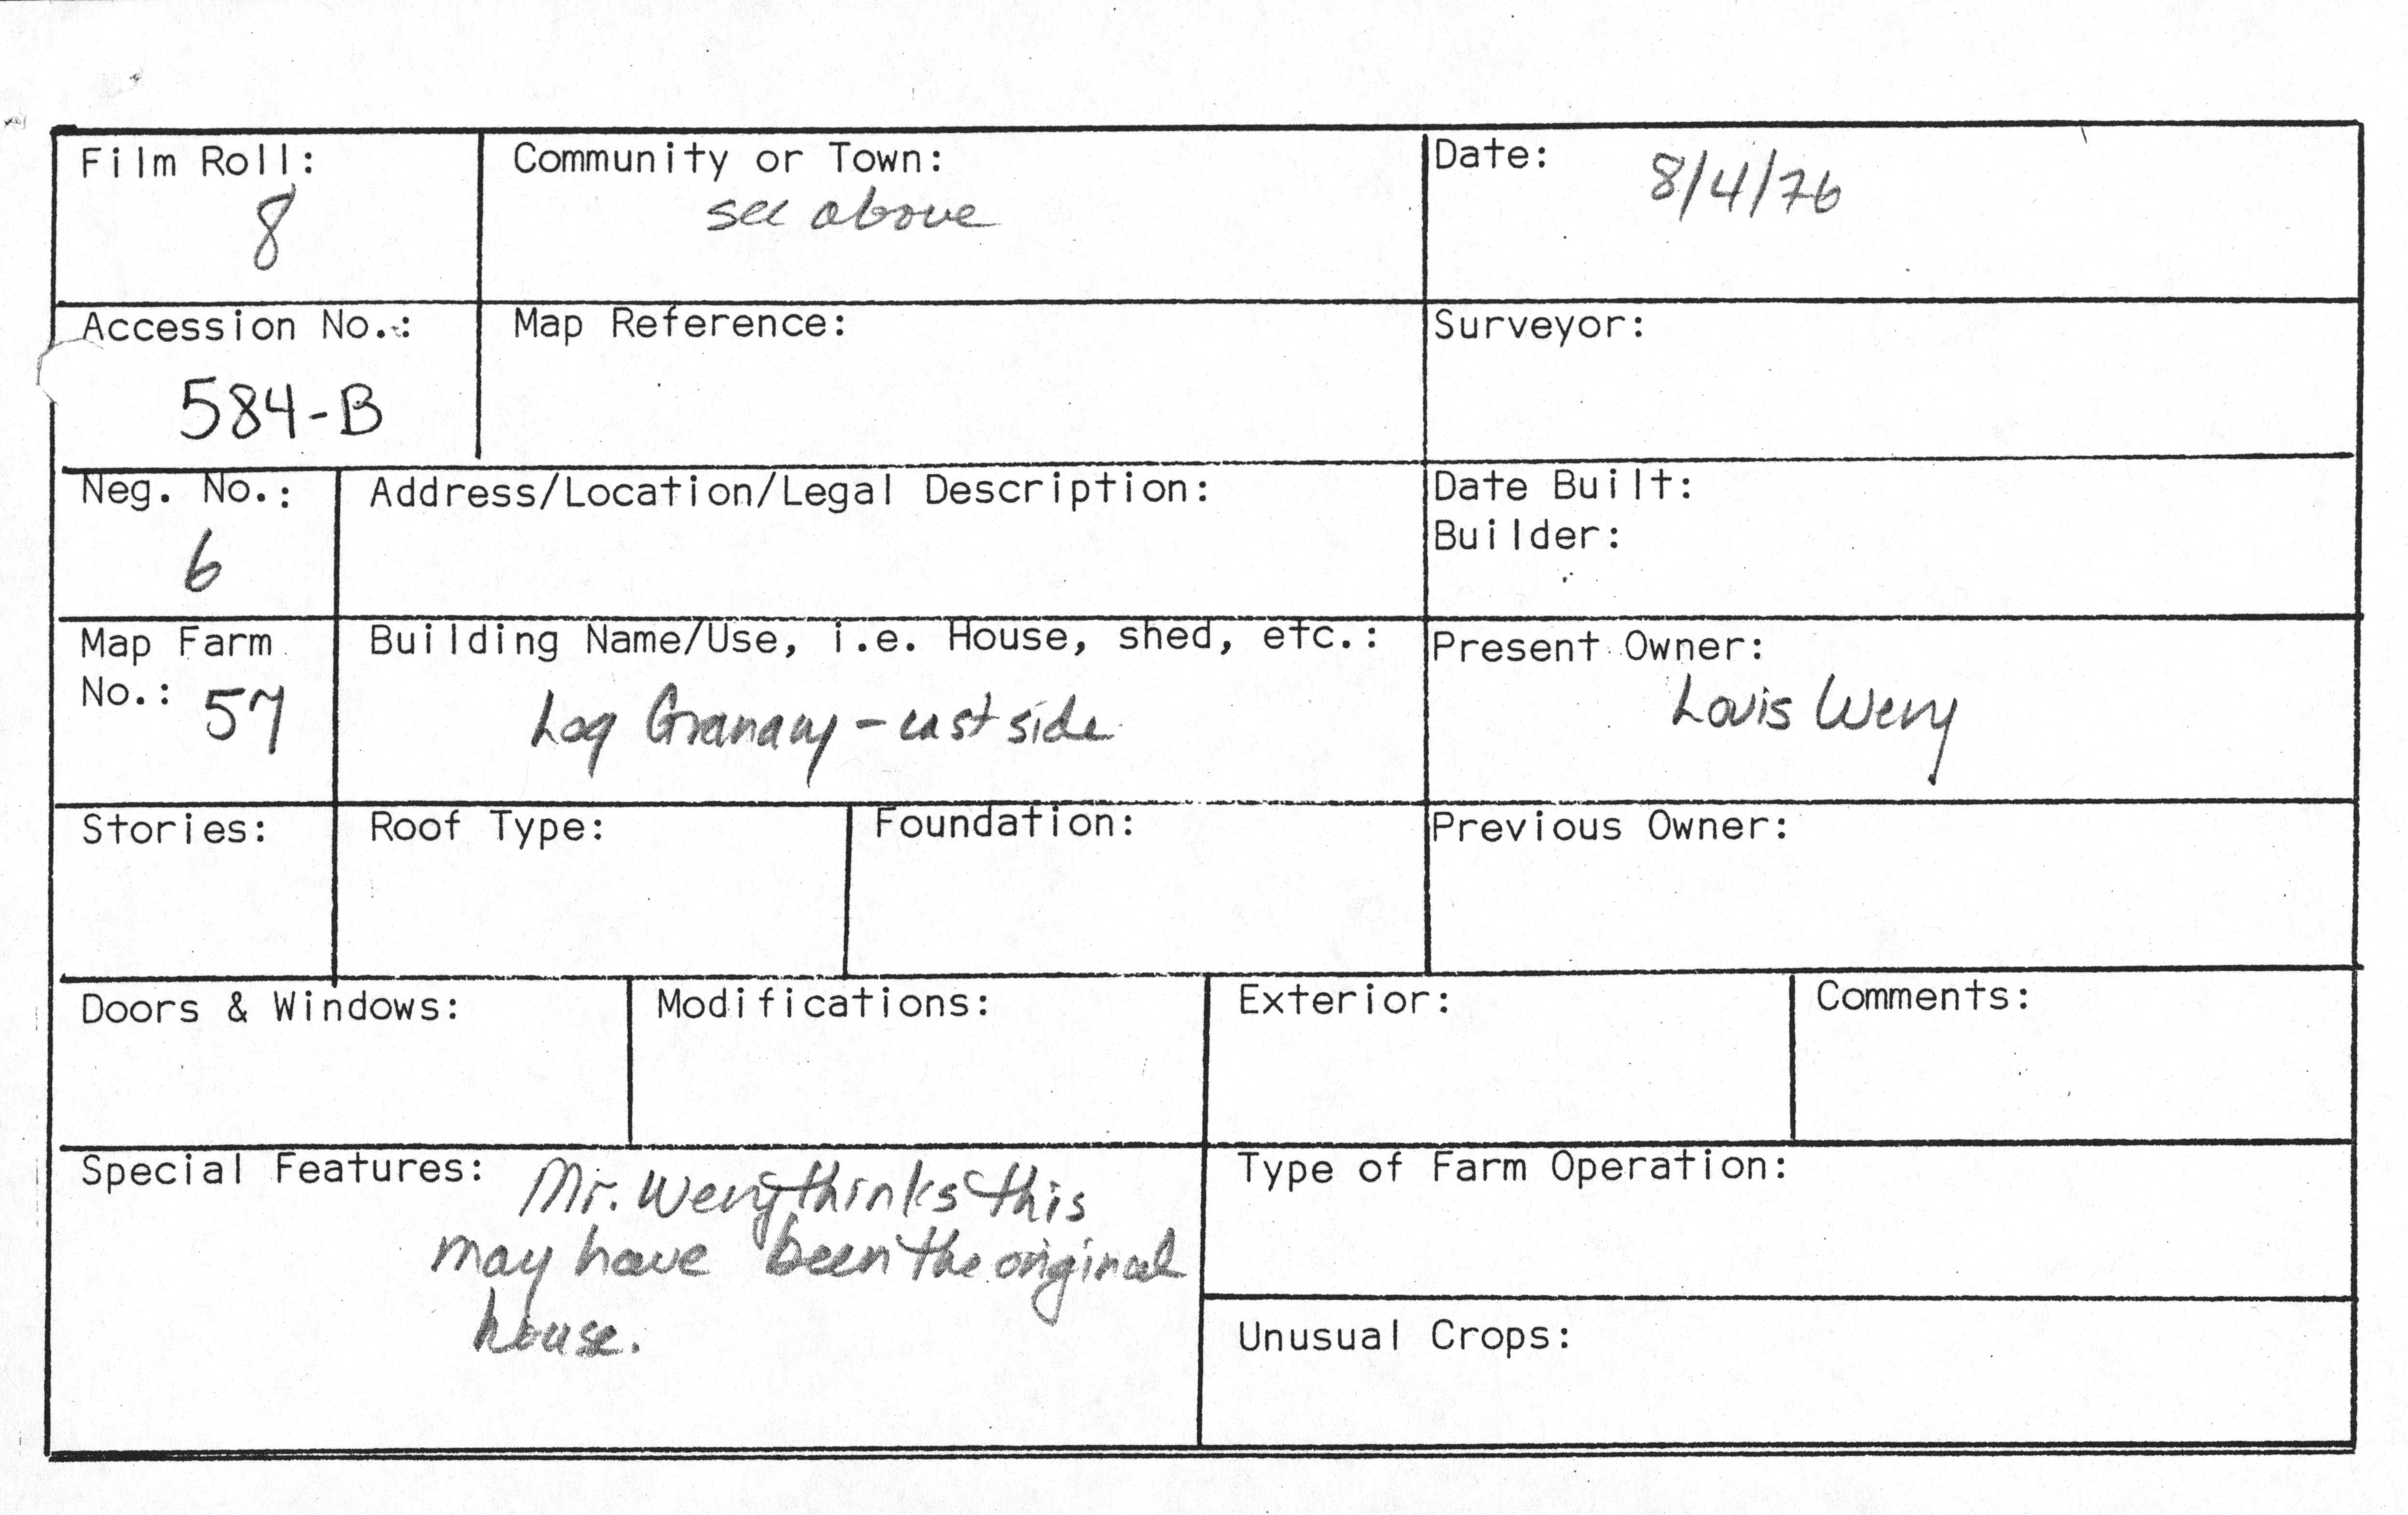 Film Roll:
8
Community or Town:
see above
Date: 8/4/76
Accession No.:
584-B
Map Reference:
Surveyor:
Neg. No.:
6
Address/Location/Legal Description:
Date Built:
Builder:
Map Farm
No.: 57
Building Name/Use, i.e. House, shed, etc.:
Log Granary - east side
Present Owner:
Louis Wery
Stories:
Roof Type:
Foundation:
Previous Owner:
Doors & Windows:
Modifications:
Exterior:
Comments:
Special Features: Mr. Wery thinks this
may have been the original
house.
Type of Farm Operation:
Unusual Crops: